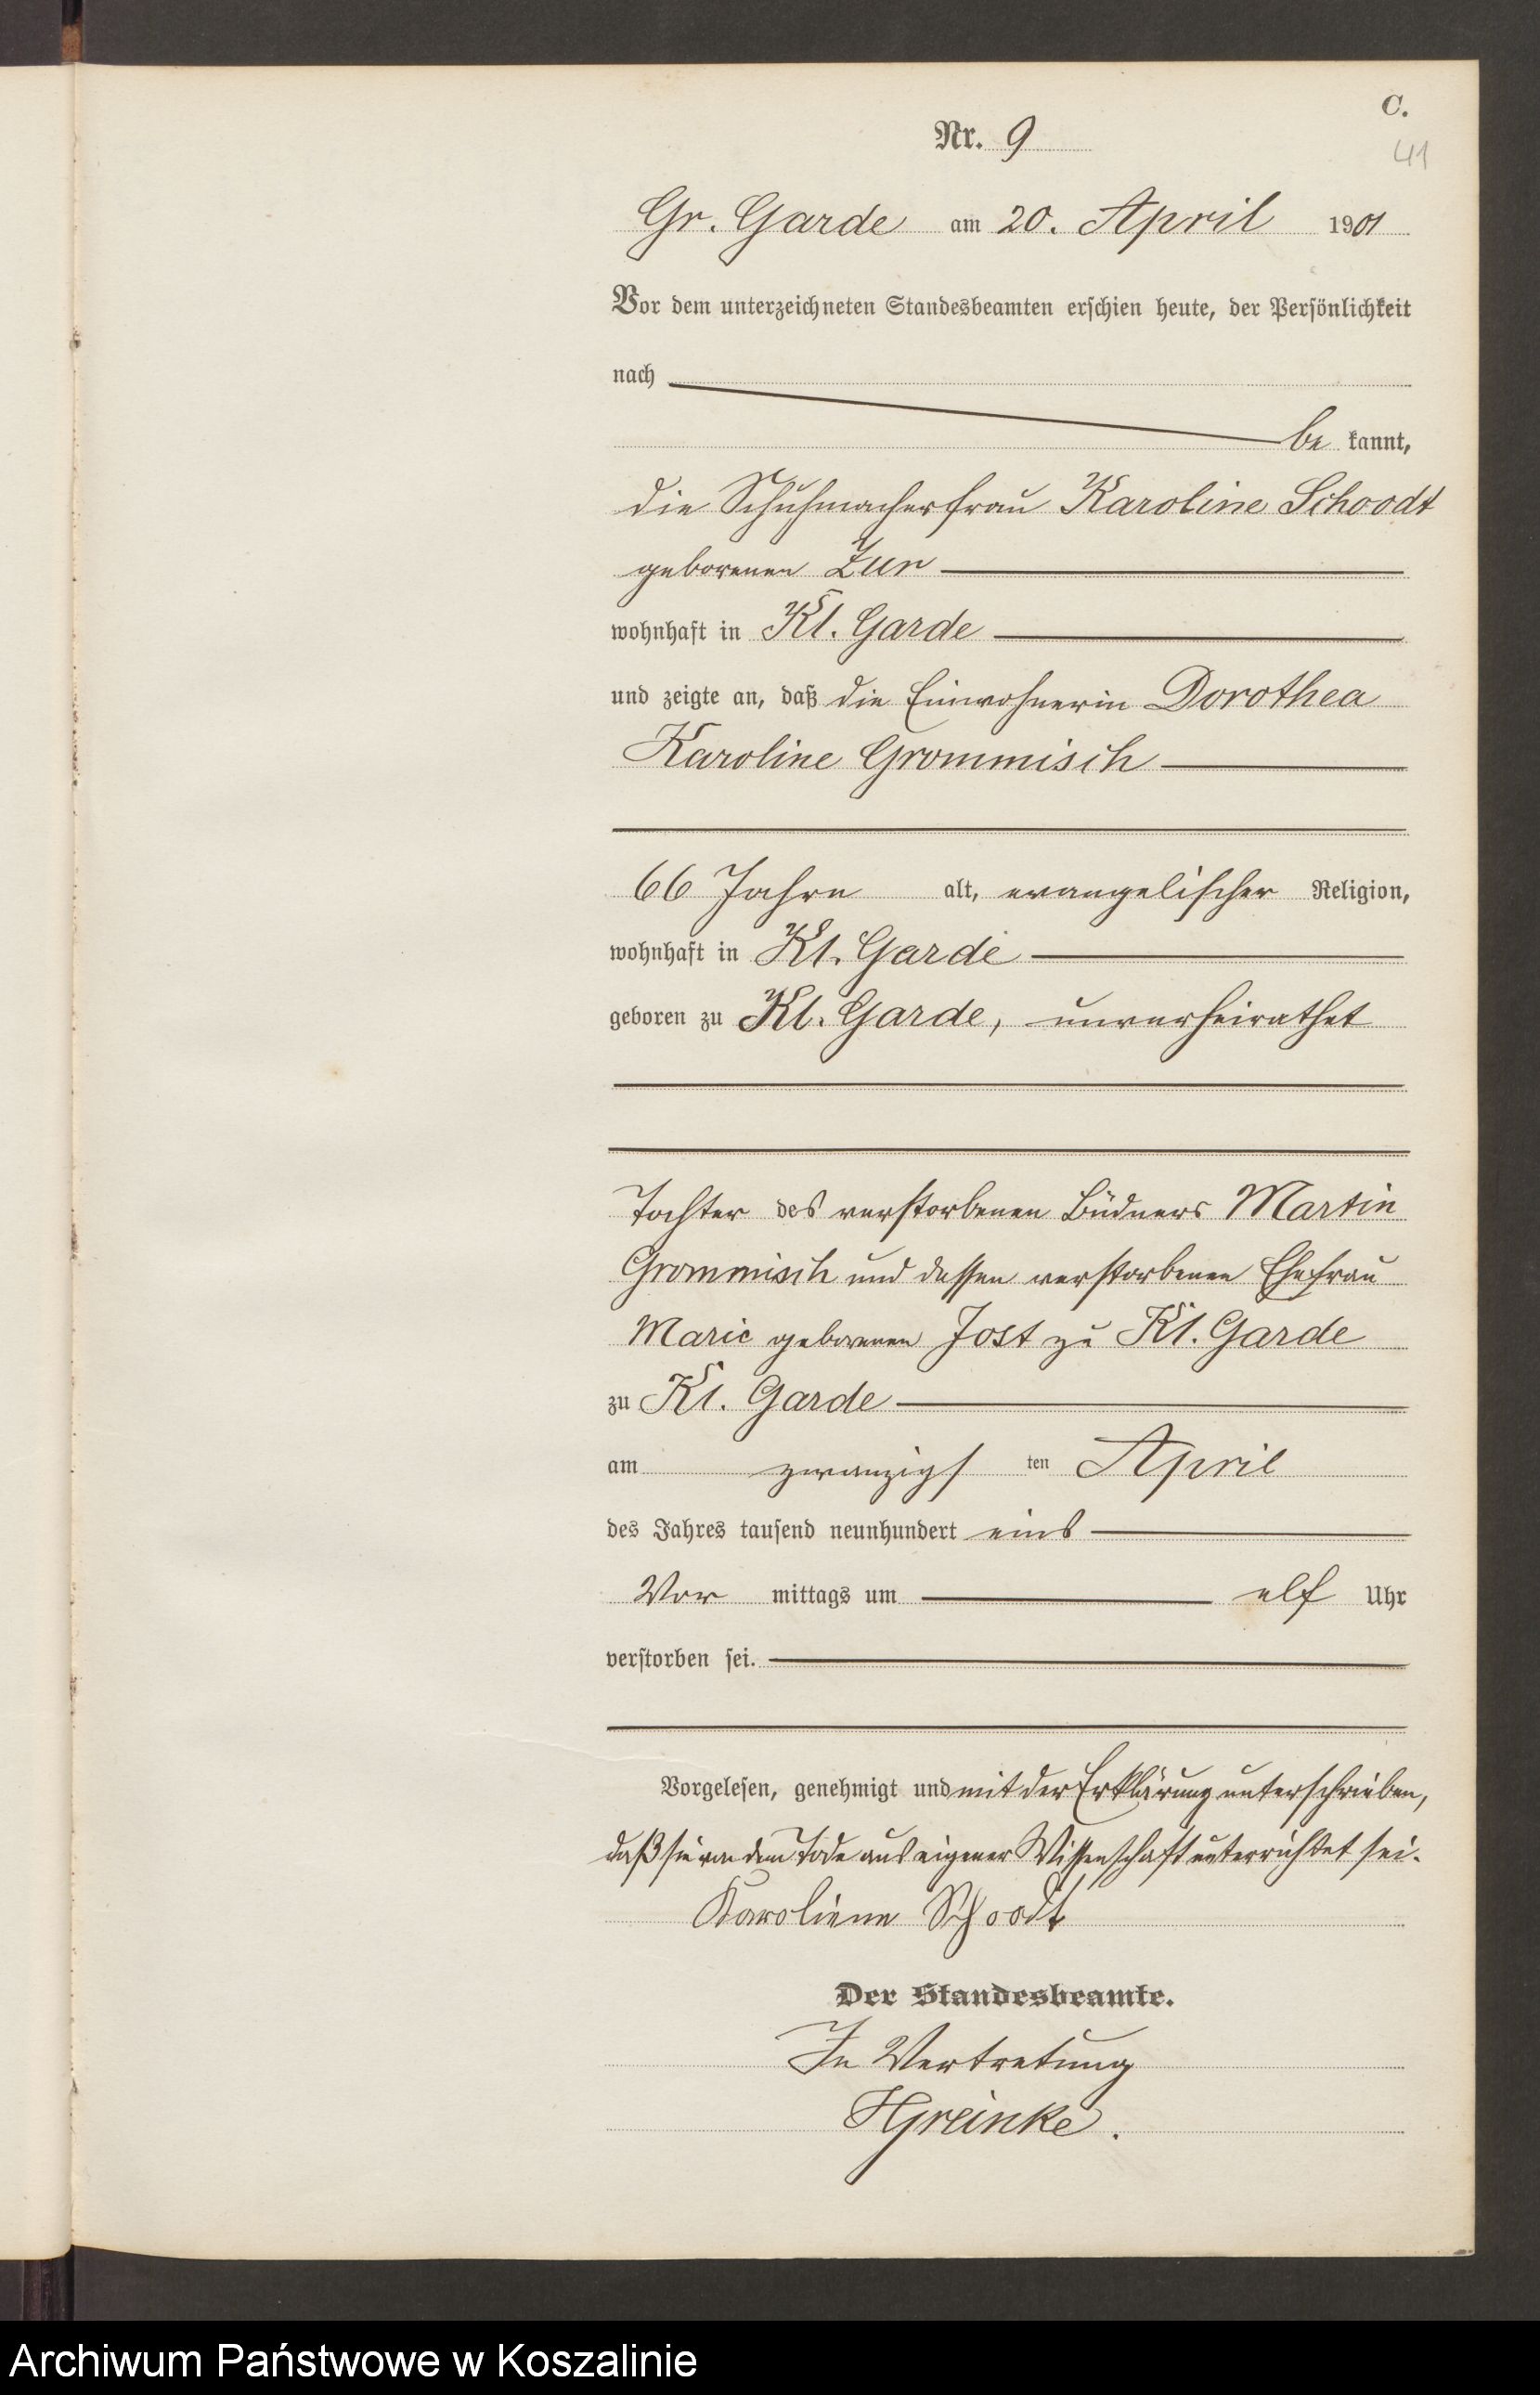 C.
Nr. 9
41
Gr. Garde am 20. April 1901
Vor dem unterzeichneten Standesbeamten erschien heute, der Persönlichkeit
nach
be kannt,
die Schuhmacherfrau Karoline Schoodt
geborenen Zur
wohnhaft in Kl. Garde
und zeigte an, daß die Einwohnerin Dorothea
Karoline Grommisch
66 Jahre alt, evangelischer Religion,
wohnhaft in Kl. Garde
geboren zu Kl. Garde, unverheirathet
Tochter des verstorbenen Büdners Martin
Grommisch und dessen verstorbenen Ehefrau
Marie geborenen Jost zu Kl. Garde
zu Kl. Garde
am zwanzigs ten April
des Jahres tausend neunhundert eins
Vor mittags um elf Uhr
verstorben sei.
Vorgelesen, genehmigt und mit der Erklärung unterschrieben,
daß sie von dem Tode aus eigener Wissenschaft unterrichtet sei.
Karoliene Schoodt
Der Standesbeamte.
In Vertretung
Greinke.
Archiwum Państwowe w Koszalinie